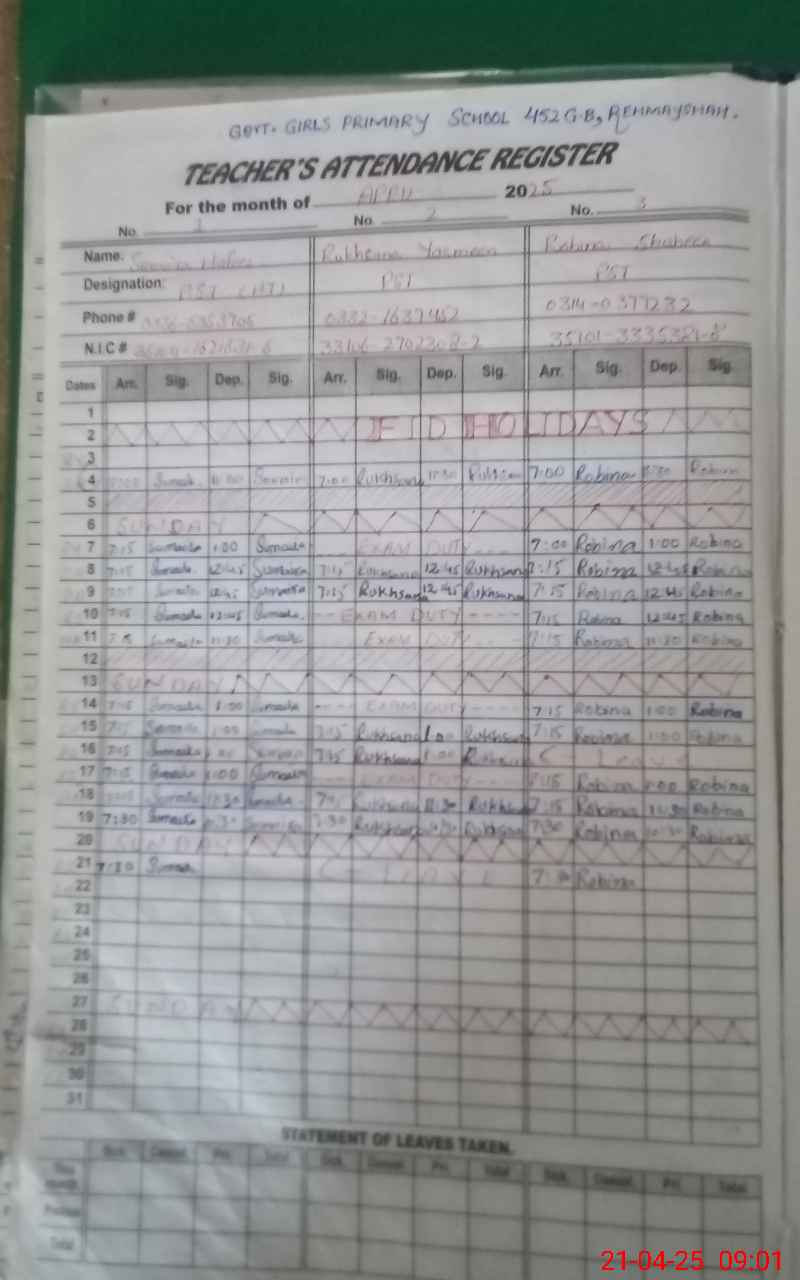 GOVT. GIRLS PRIMARY SCHOOL 452 G.B, REHMAYSHAH.
TEACHER'S ATTENDANCE REGISTER
For the month of APRIL 2025
No. 1 No. 2 No. 3
Name: Rukhsana Yasmeen Robina Shaheen
Designation: PST (HT) PST PST
Phone # 0332-1637452 0314-0377232
N.I.C #
Dates Arr. Sig. Dep. Sig. Arr. Sig. Dep. Sig. Arr. Sig. Dep. Sig.
1
2 EID HOLIDAYS
3
4 7:00 Rukhsana 11:30 7:00 Robina 11:30 Robina
5
6 SUNDAY
7 7:15 Sumaira 1:00 Sumaira EXAM DUTY 7:00 Robina 1:00 Robina
8 7:15 Sumaira 12:45 Sumaira 7:15 Rukhsana 12:45 Rukhsana 7:15 Robina 12:45 Robina
9 7:15 Sumaira 12:45 Sumaira 7:15 Rukhsana 12:45 Rukhsana 7:15 Robina 12:45 Robina
10 7:15 Sumaira 12:45 Sumaira -- EXAM DUTY ---- 7:15 Robina 12:45 Robina
11 Sumaira 11:30 Sumaira EXAM DUTY ---- 7:15 Robina 11:30 Robina
12
13 SUNDAY
14 7:15 Sumaira 1:00 Sumaira ---- EXAM DUTY ---- 7:15 Robina 1:00 Robina
15 7:15 Sumaira 1:00 Sumaira 7:15 Rukhsana 1:00 Rukhsana 7:15 Robina 1:00 Robina
16 7:15 Sumaira Sumaira 7:15 Rukhsana 1:00 Rukhsana C - Leave
17 7:15 Sumaira 1:00 Sumaira EXAM DUTY ---- 7:15 Robina 1:00 Robina
18 Sumaira 11:30 Sumaira 7:15 Rukhsana 11:30 Rukhsana 7:15 Robina 11:30 Robina
19 7:30 Sumaira Sumaira 7:30 Rukhsana Rukhsana 7:30 Robina Robina
20 SUNDAY
21 7:30 Sumaira C - LEAVE Robina
22
23
24
25
26
27 SUNDAY
28
29
30
31
STATEMENT OF LEAVES TAKEN.
Sick. Casual. Pri. Total Sick. Casual. Pri. Total Sick. Casual. Pri. Total
This month
Previous
Total
21-04-25 09:01